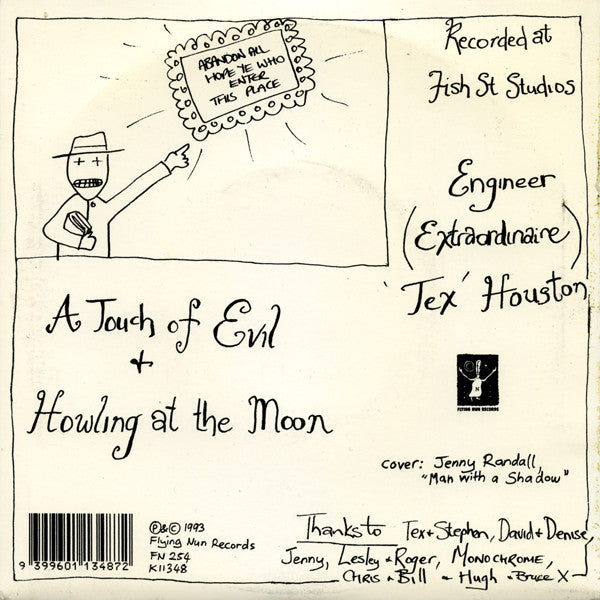 ABANDON ALL
HOPE YE WHO
ENTER
THIS PLACE
Recorded at
Fish St Studios
Engineer
(Extraordinaire)
'Tex' Houston
A Touch of Evil
+
Howling at the Moon
N
FLYING NUN RECORDS
cover: Jenny Randall,
"Man with a Shadow"
9 399601 134872
℗&© 1993
Flying Nun Records
FN 254
K11348
Thanks to Tex + Stephen, David + Denise,
Jenny, Lesley + Roger, MONOCHROME,
CHRIS + Bill + Hugh + Bruce X